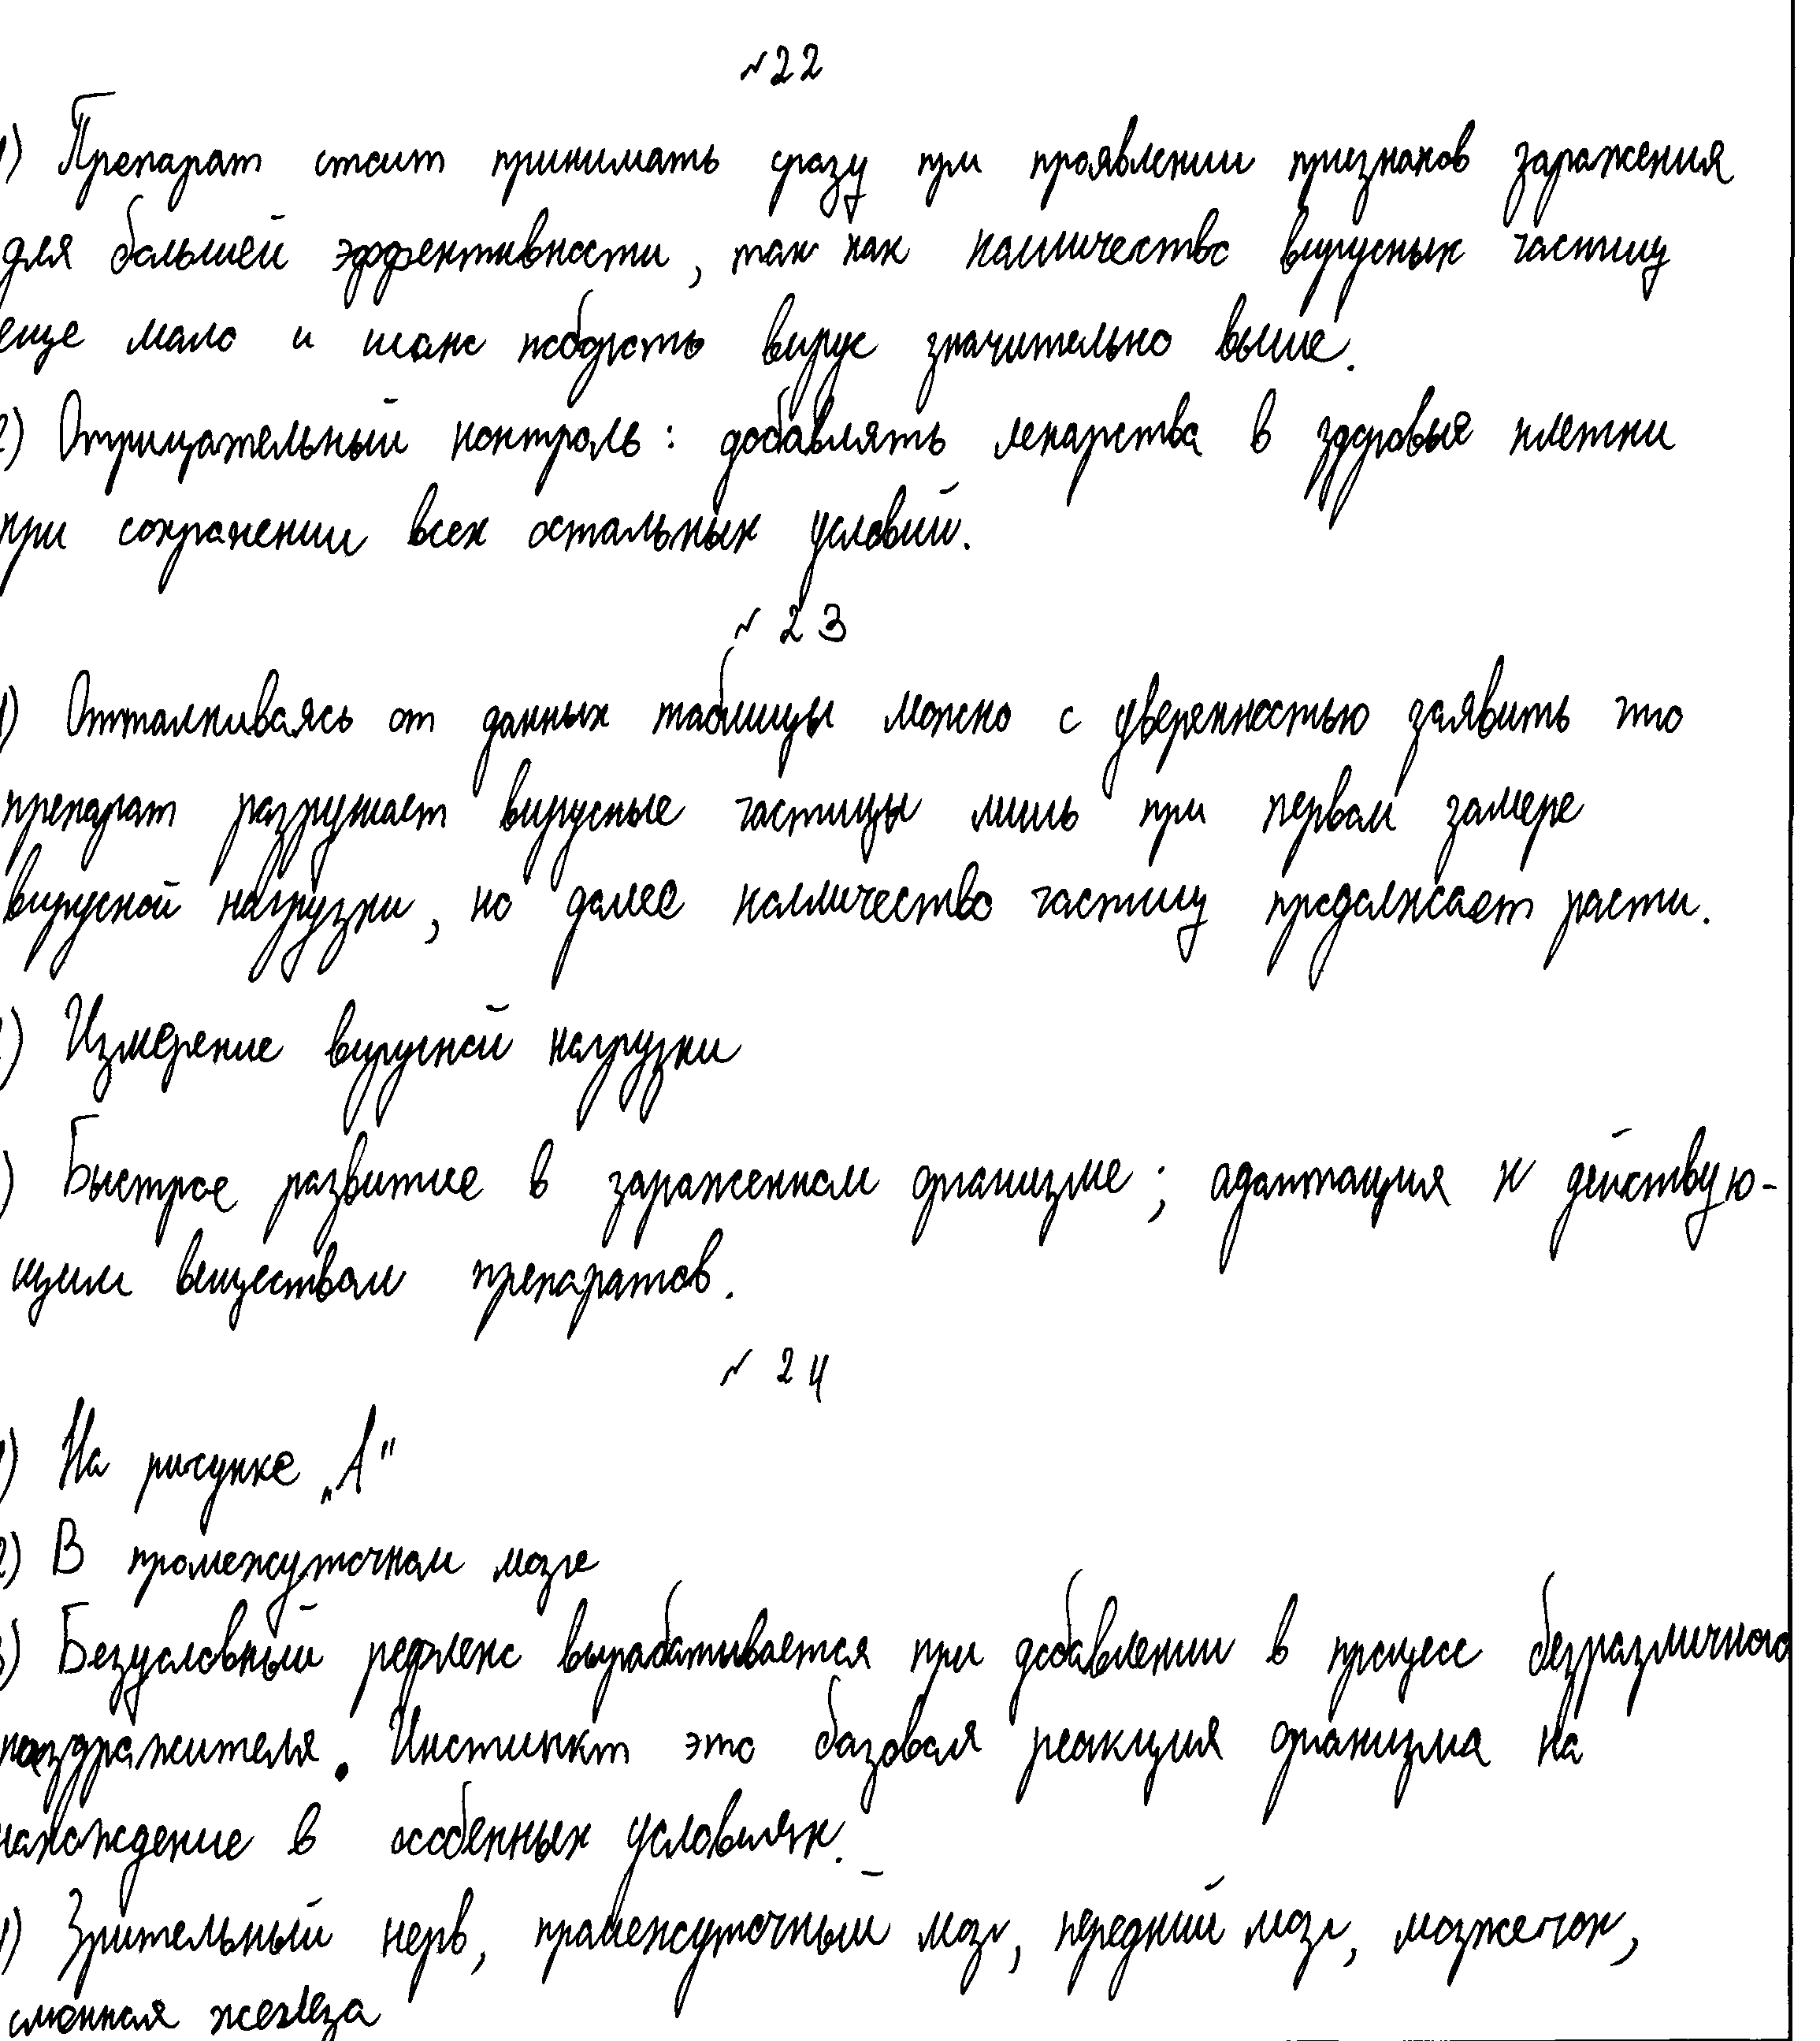 №22
1) Препарат стоит принимать сразу при проявлении признаков заражения
для большей эффективности, так как колличество вирусных частиц
еще мало и шанс побороть вирус значительно выше.
2) Отрицательный контроль: добавлять лекарства в здоровые клетки
при сохранении всех остальных условий.
№ 23
1) Отталкиваясь от данных таблицы можно с уверенностью заявить что
препарат разрушает вирусные частицы лишь при первом замере
вирусной нагрузки, но далее колличество частиц продолжает расти.
2) Измерение вирусной нагрузки
) Быстрое развитие в зараженном организме; адаптация к действую-
щим веществам препаратов.
№ 24
1) На рисунке „А"
2) В промежуточном мозге
3) Безусловный рефлекс вырабатывается при добавлении в процесс безразличного
раздражителя. Инстинкт это базовая реакция организма на
нахождение в особенных условиях.
4) Зрительный нерв, промежуточный мозг, передний мозг, мозжечок,
слюнная железа